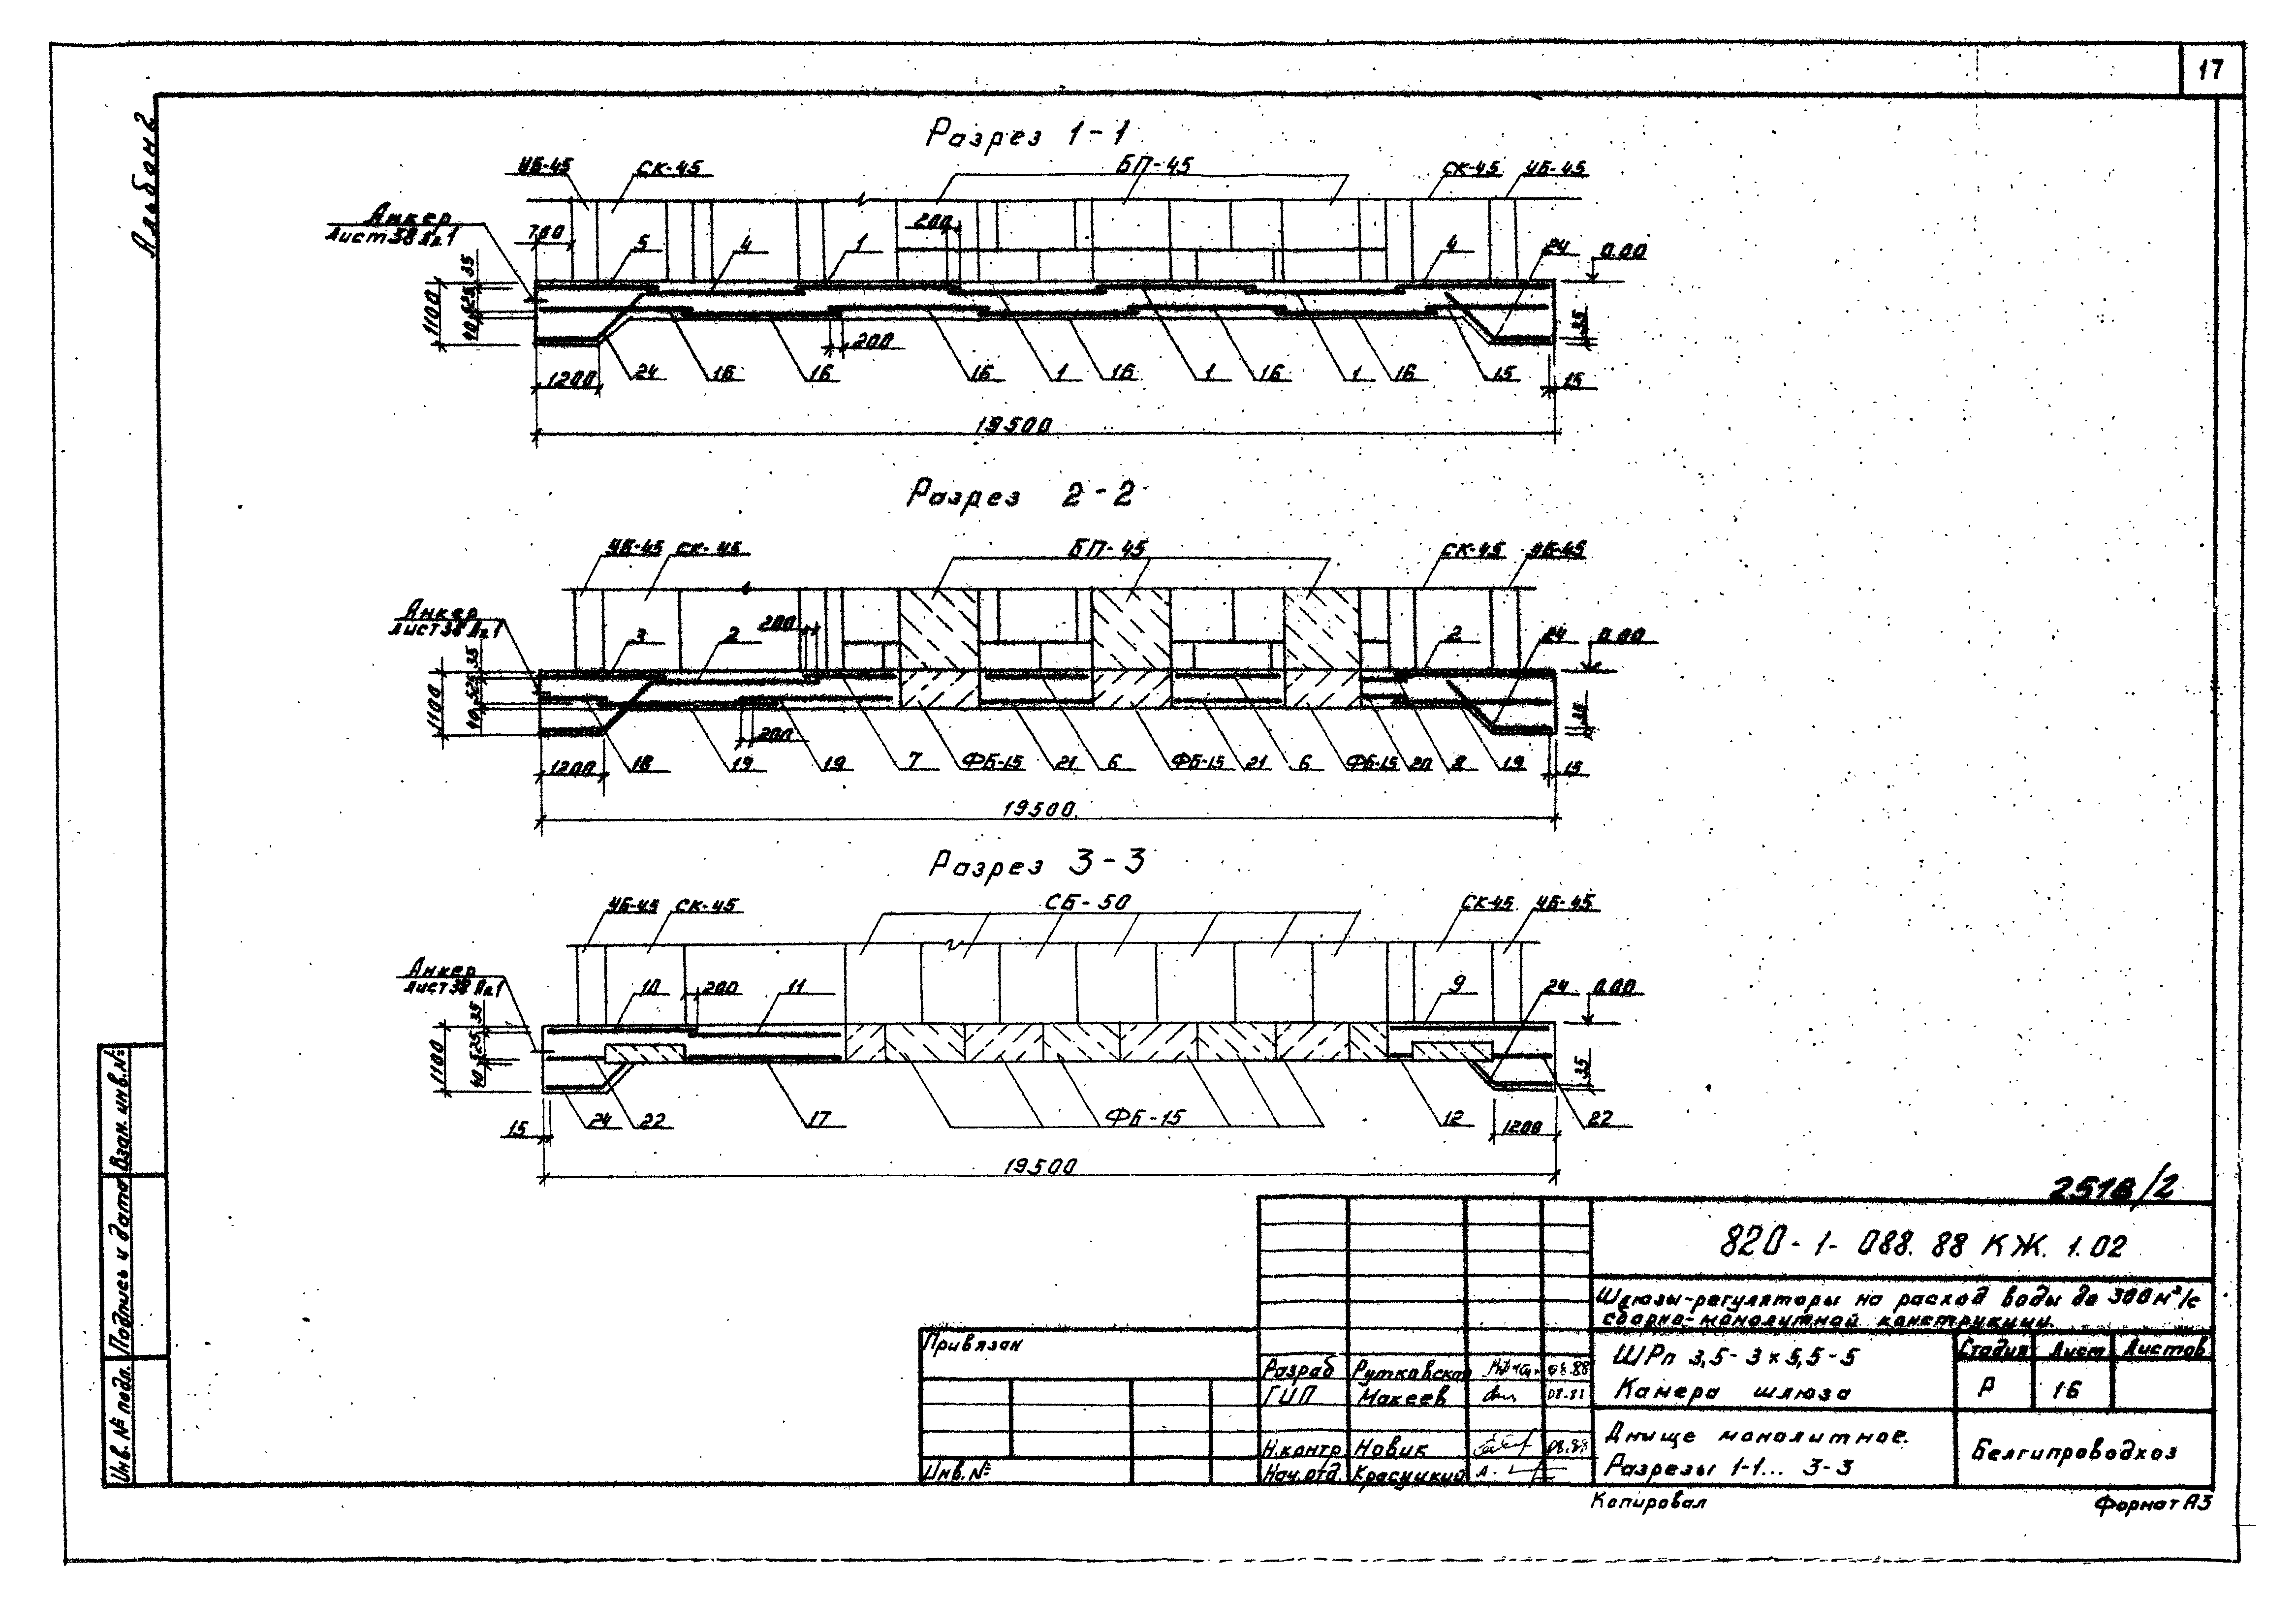 17
Альбом 2
Разрез 1-1
УБ-45 СК-45 БП-45 СК-45 УБ-45
Анкер
Лист 38 Ал.1
700 5 4 1 200 4 24 0.00
35
525
40
1100
35
200
1200 24 16 16 16 1 16 1 16 1 16 15 15
19500
Разрез 2-2
УБ-45 СК-45 БП-45 СК-45 УБ-45
Анкер
Лист 38 Ал.1
3 2 200 2 24 0.00
35
525
40
1100
35
200
1200 18 19 19 7 ФБ-15 21 6 ФБ-15 21 6 ФБ-15 20 8 19 15
19500
Разрез 3-3
УБ-45 СК-45 СБ-50 СК-45 УБ-45
Анкер
Лист 38 Ал.1
10 200 11 9 24 0.00
35
525
40
1100
35
15 24 22 17 ФБ-15 12 1200 22
19500
2518/2
820-1-088.88 КЖ. 1.02
Шлюзы-регуляторы на расход воды до 300 м³/с
сборно-монолитной конструкции.
Привязан
Инв. №
Разраб Рутковская 08.88
ГИП Макеев 08.88
Н.контр Новик 08.88
Нач.отд. Красуцкий
ШРп 3,5-3×5,5-5
Камера шлюза
Стадия Лист Листов
Р 16
Днище монолитное.
Разрезы 1-1... 3-3
Белгипроводхоз
Копировал
Формат А3
Взам. инв. №
Подпись и дата
Инв. № подл.